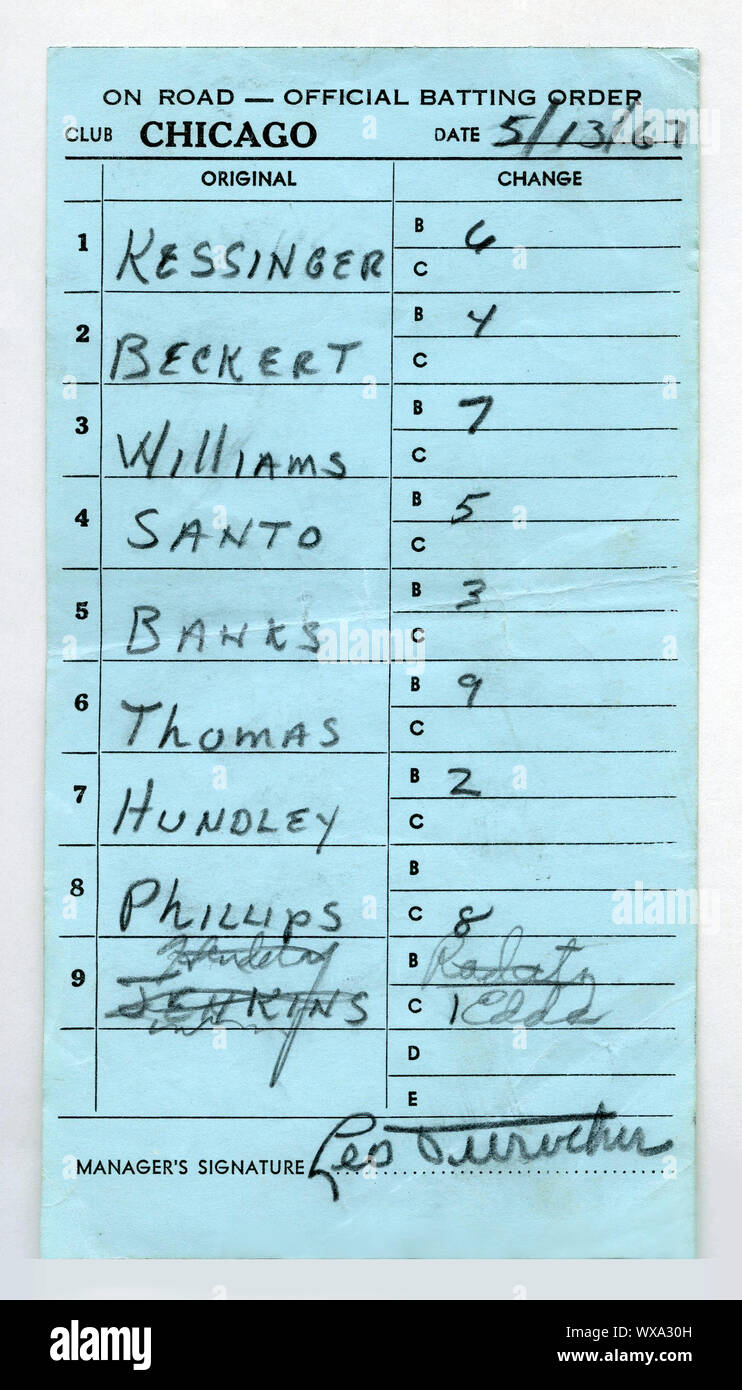 ON ROAD — OFFICIAL BATTING ORDER
CLUB CHICAGO DATE 5/13/67
ORIGINAL CHANGE
1 KESSINGER B 6
C
2 BECKERT B 4
C
3 WILLIAMS B 7
C
4 SANTO B 5
C
5 BANKS B 3
C
6 THOMAS B 9
C
7 HUNDLEY B 2
C
8 PHILLIPS B
C 8
9 JENKINS B Radatz
C 1
D
E
MANAGER'S SIGNATURE Leo Durocher
alamy
alamy
Image ID: WXA30H
www.alamy.com